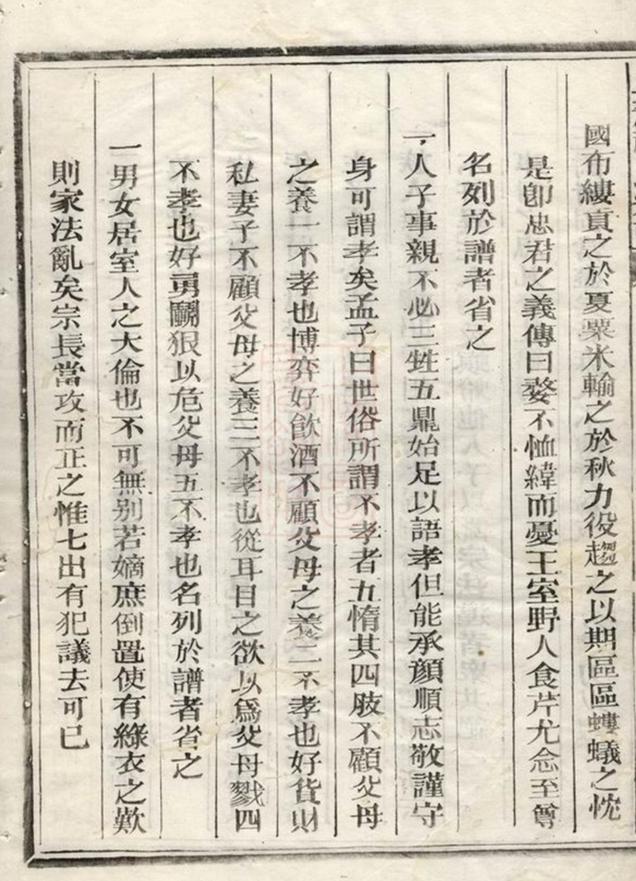 國布縷貢之於夏粟米輸之於秋力役趨之以期區區螻蟻之忱
是卽忠君之義傳曰嫠不恤緯而憂王室野人食芹尤念至尊
名列於譜者省之
一人子事親不必三牲五鼎始足以語孝但能承顏順志敬謹守
身可謂孝矣孟子曰世俗所謂不孝者五惰其四肢不顧父母
之養一不孝也博弈好飲酒不顧父母之養二不孝也好貨財
私妻子不顧父母之養三不孝也從耳目之欲以爲父母戮四
不孝也好勇鬬狠以危父母五不孝也名列於譜者省之
一男女居室人之大倫也不可無别若嫡庶倒置使有綠衣之歎
則家法亂矣宗長當攻而正之惟七出有犯議去可已